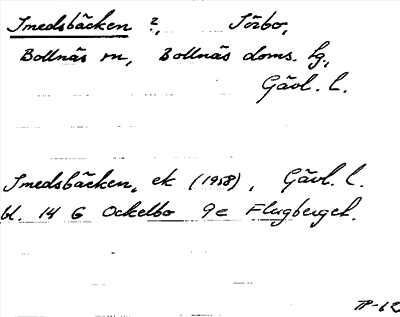 Smedsbäcken ?, Sörbo,
Bollnäs sn, Bollnäs doms. tg.,
Gävl. l.
Smedsbäcken, ek (1958), Gävl. l.
bl. 14 G Ockelbo 9e Flugberget.